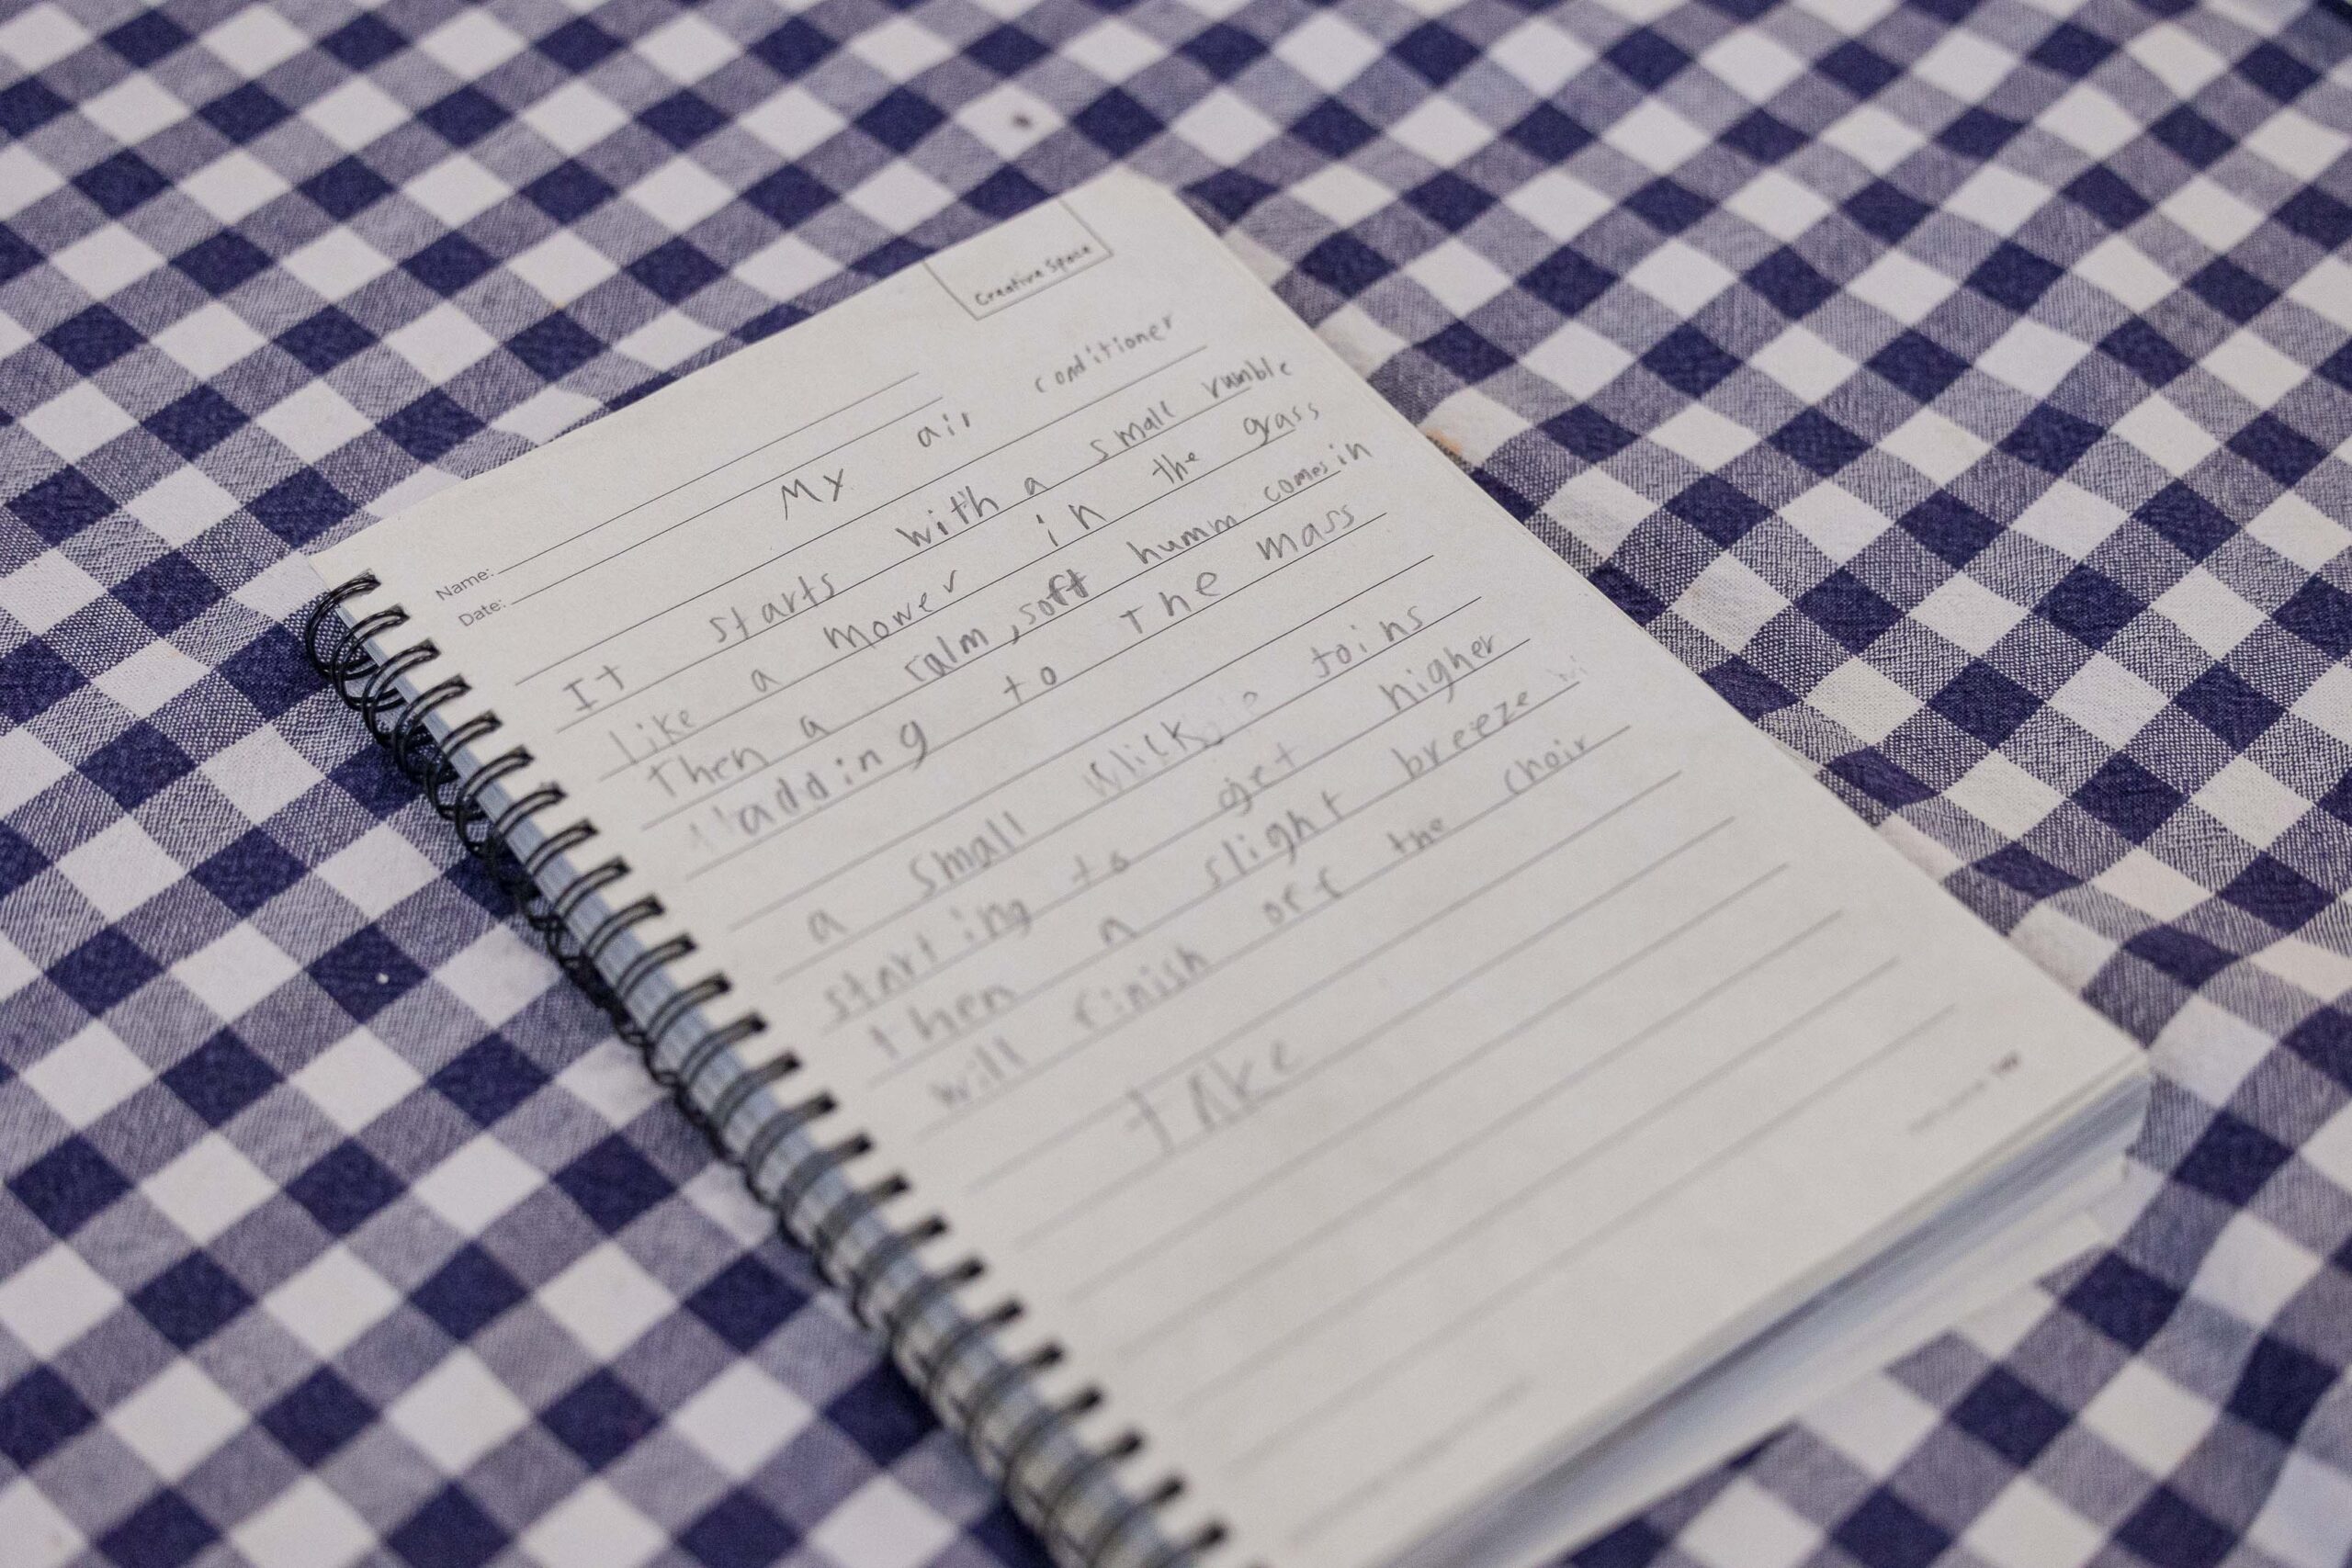 Creative Space
Name:
Date:
My air conditioner
It starts with a small rumble
like a mower in the grass
then a calm, soft humm comes in
adding to The mass
a small joins
starting to get higher
then a slight breeze
will finish off the choir